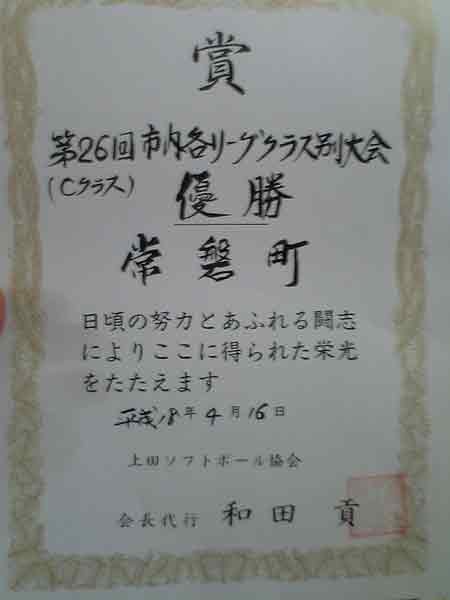 賞
第26回市内各リーグクラス別大会
(Cクラス)
優勝
常磐町
日頃の努力とあふれる闘志
によりここに得られた栄光
をたたえます
平成18年4月16日
上田ソフトボール協会
会長代行 和田 貢